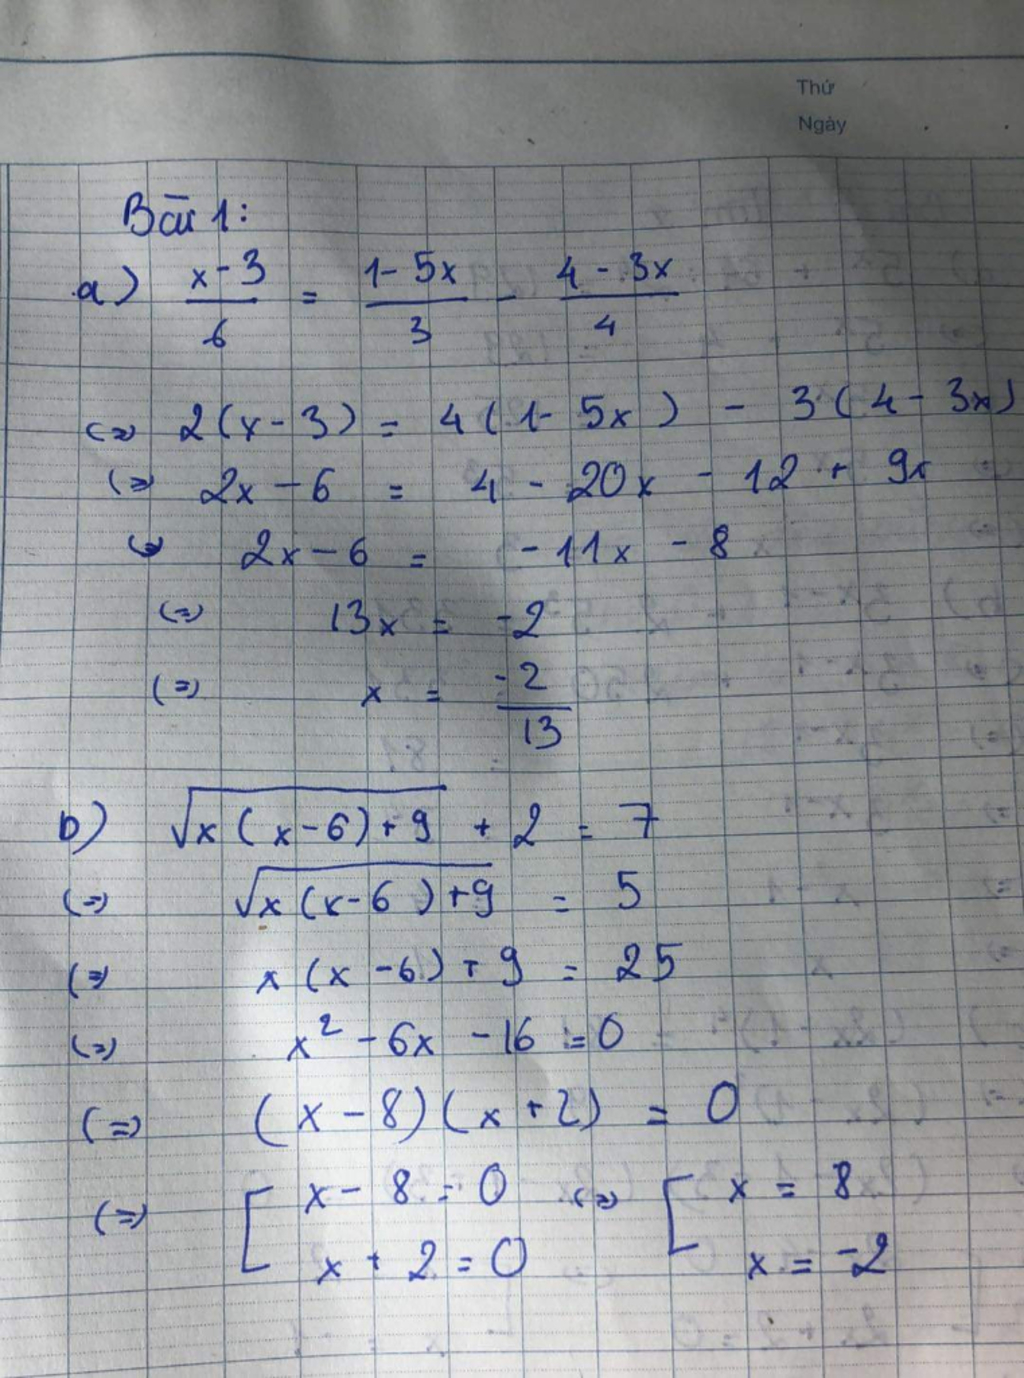 Thứ
Ngày
Bài 1:
a) \frac{x-3}{6} = \frac{1-5x}{3} - \frac{4-3x}{4}
(=) 2(x-3) = 4(1-5x) - 3(4-3x)
(=) 2x-6 = 4 - 20x - 12 + 9x
(=) 2x-6 = -11x - 8
(=) 13x = -2
(=) x = \frac{-2}{13}
b) \sqrt{x(x-6)+9} + 2 = 7
(=) \sqrt{x(x-6)+9} = 5
(=) x(x-6)+9 = 25
(=) x² - 6x - 16 = 0
(=) (x-8)(x+2) = 0
(=) [ x-8=0 (=) [ x = 8
x+2=0 x = -2